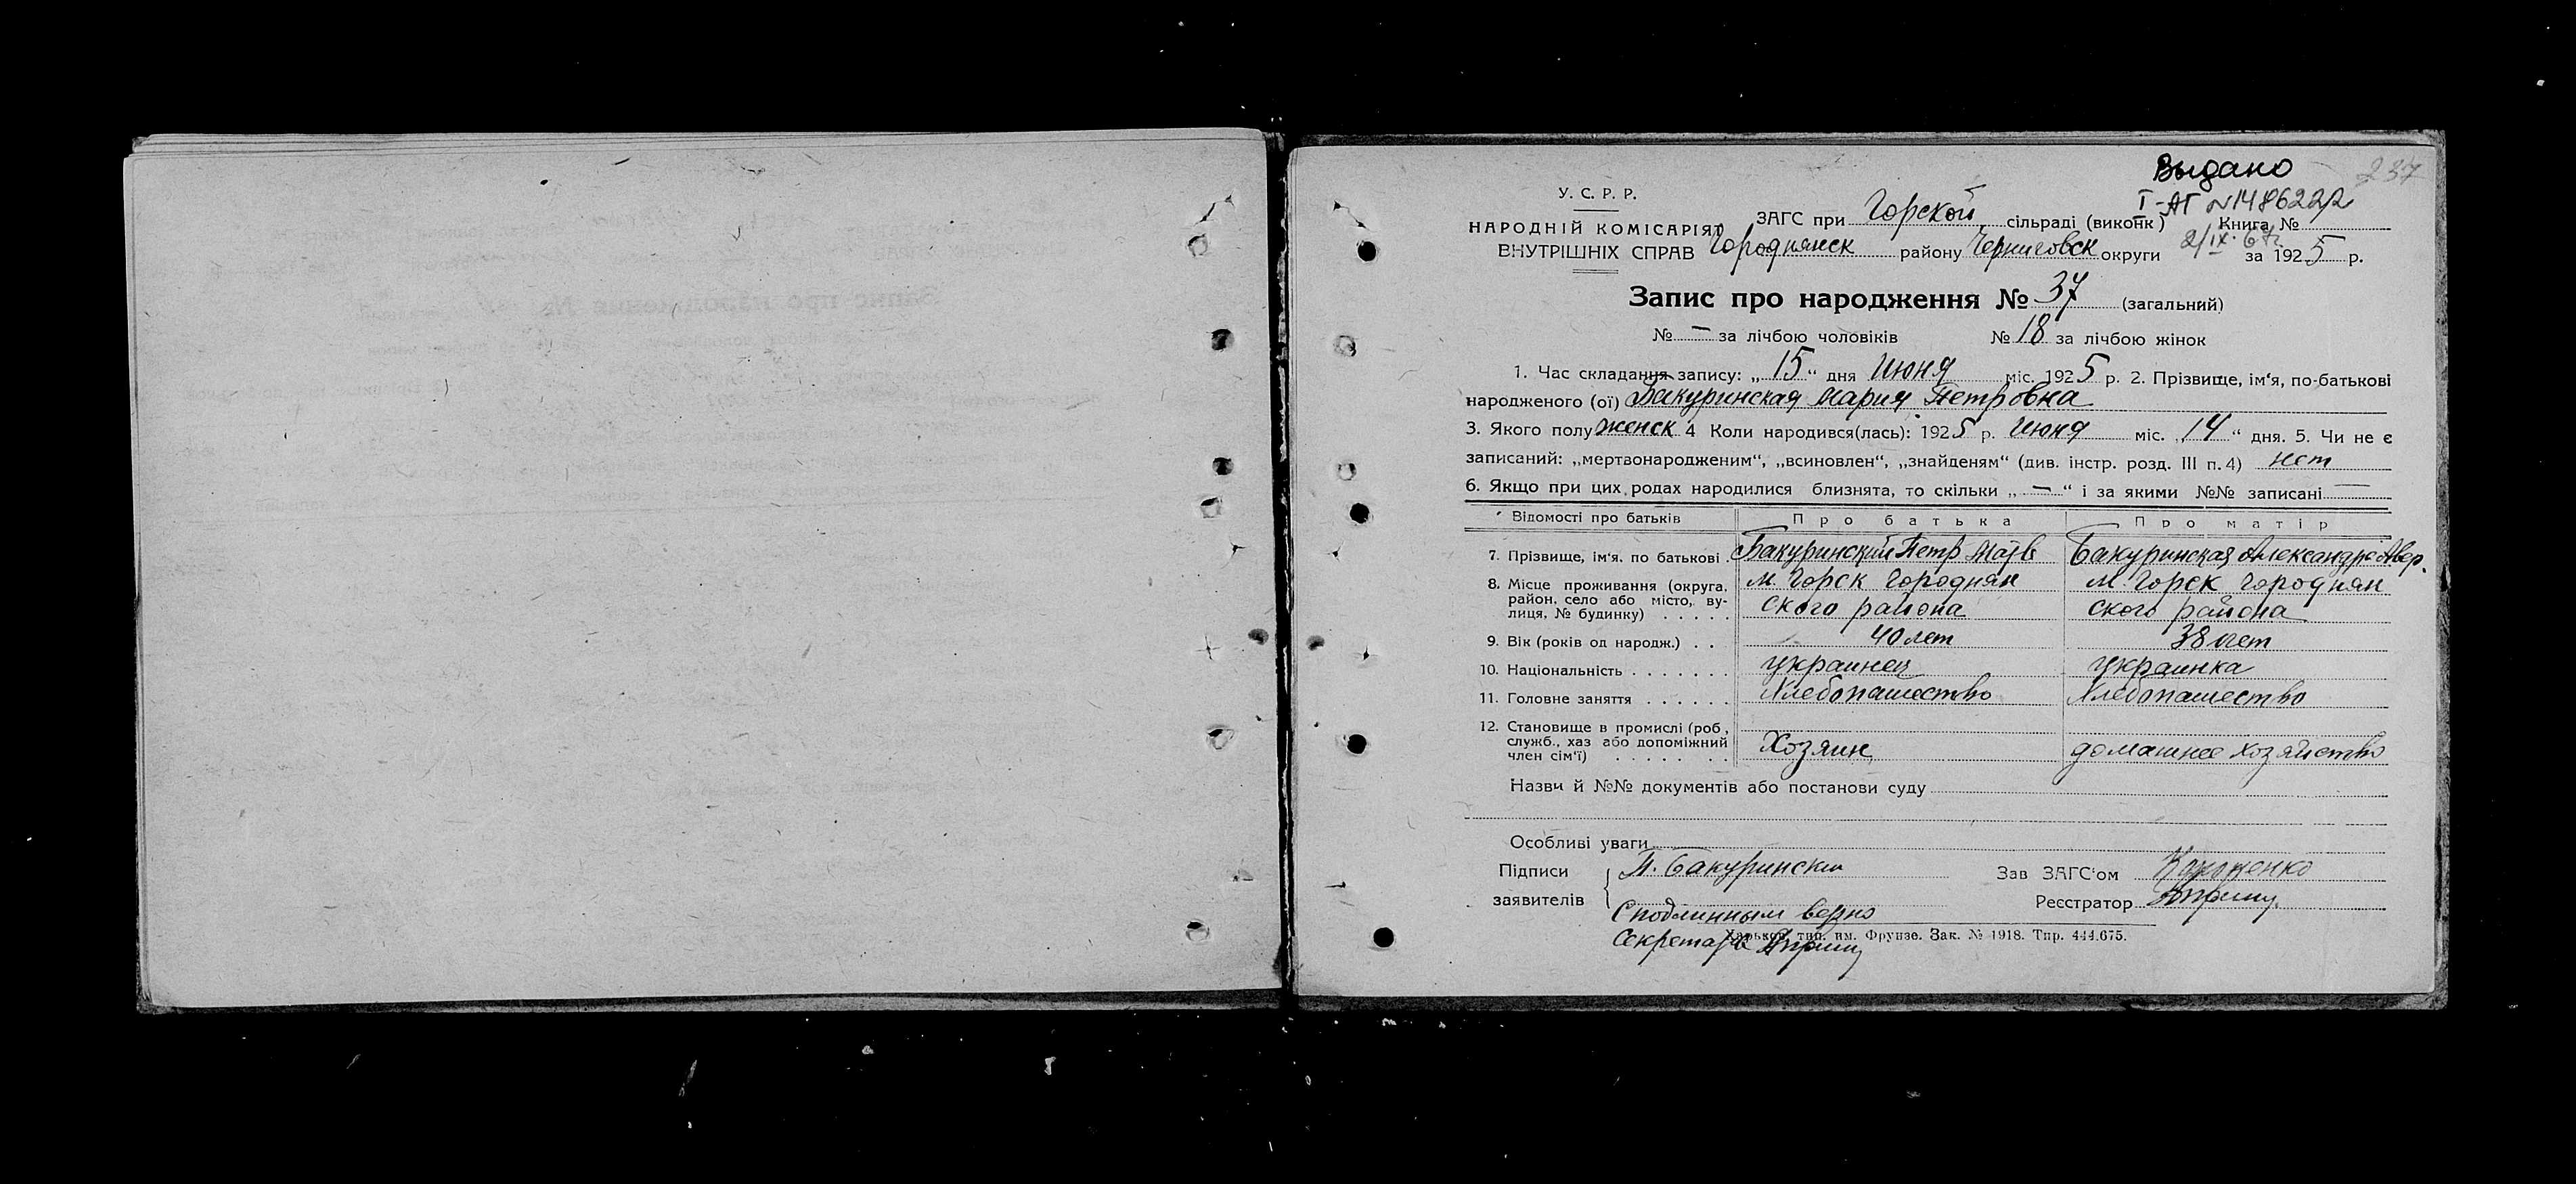 Выдано 237
У. С. Р. Р.
I-АГ №1486222
НАРОДНІЙ КОМІСАРІЯТ ЗАГС при Горской сільраді (виконк) Книга №
ВНУТРІШНІХ СПРАВ Городнянск району Черниговск округи 2/IX-67г. за 1925 р.
Запис про народження № 37 (загальний)
№ — за лічбою чоловіків № 18 за лічбою жінок
1. Час складання запису: „15“ дня Июня міс. 1925 р. 2. Прізвище, ім‘я, по-батькові
народженого (ої) Бакуринская Мария Петровна
3. Якого полу женск 4 Коли народився(лась): 1925 р. Июня міс. „14“ дня. 5. Чи не є
записаний: „мертвонародженим“, „всиновлен“, „знайденям“ (див. інстр. розд. III п. 4) нет
6. Якщо при цих родах народилися близнята, то скільки „—“ і за якими №№ записані —
Відомості про батьків Про батька Про матір
7. Прізвище, ім‘я. по батькові . Бакуринский Петр Матв Бакуринская Александра Авер.
8. Місце проживання (округа, м. Горск Городнян м. Горск Городнян
район, село або місто, ву-
лиця, № будинку) . . . . . ского района ского района
9. Вік (років од народж.) . . 40 лет 38 лет
10. Національність . . . . . . . украинец украинка
11. Головне заняття . . . . . . Хлебопашество Хлебопашество
12. Становище в промислі (роб,
служб., хаз або допоміжний Хозяин домашнее хозяйство
член сім‘ї) . . . . . . .
Назви й №№ документів або постанови суду
Особливі уваги
Підписи П. Бакуринский Зав ЗАГС‘ом
заявителів Реєстратор
С подлинным верно
Харьков, тип. им. Фрунзе. Зак. № 1918. Тир. 444.675.
Секретарь